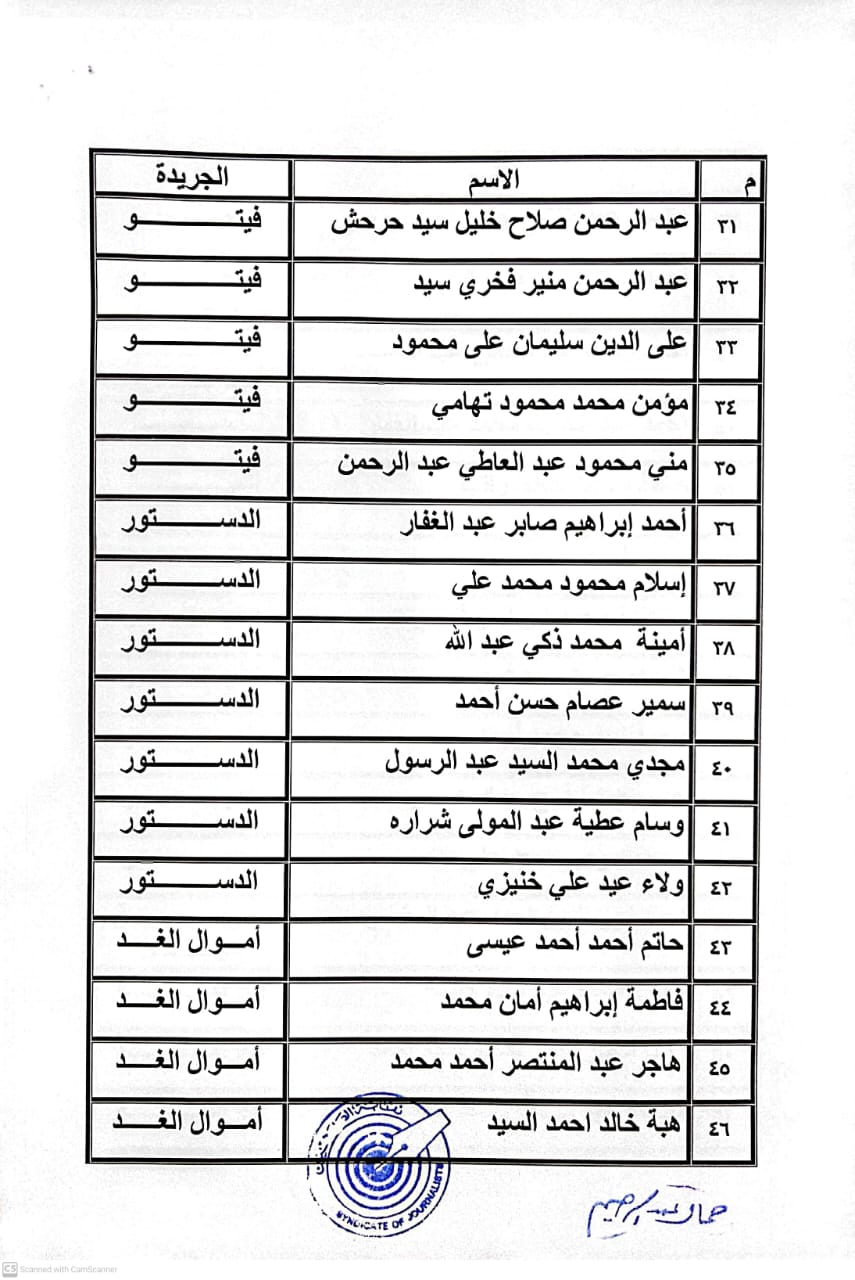 م الاسم الجريدة
٣١ عبد الرحمن صلاح خليل سيد حرحش فيتـــــــــــــو
٣٢ عبد الرحمن منير فخري سيد فيتـــــــــــــو
٣٣ على الدين سليمان على محمود فيتـــــــــــــو
٣٤ مؤمن محمد محمود تهامي فيتـــــــــــــو
٣٥ مني محمود عبد العاطي عبد الرحمن فيتـــــــــــــو
٣٦ أحمد إبراهيم صابر عبد الغفار الدســـــــتور
٣٧ إسلام محمود محمد علي الدســـــــتور
٣٨ أمينة محمد ذكي عبد الله الدســـــــتور
٣٩ سمير عصام حسن أحمد الدســـــــتور
٤٠ مجدي محمد السيد عبد الرسول الدســـــــتور
٤١ وسام عطية عبد المولى شراره الدســـــــتور
٤٢ ولاء عيد علي خنيزي الدســـــــتور
٤٣ حاتم أحمد أحمد عيسى أمـــوال الغـــد
٤٤ فاطمة إبراهيم أمان محمد أمـــوال الغـــد
٤٥ هاجر عبد المنتصر أحمد محمد أمـــوال الغـــد
٤٦ هبة خالد احمد السيد أمـــوال الغـــد
SYNDICATE OF JOURNALISTS
CS Scanned with CamScanner